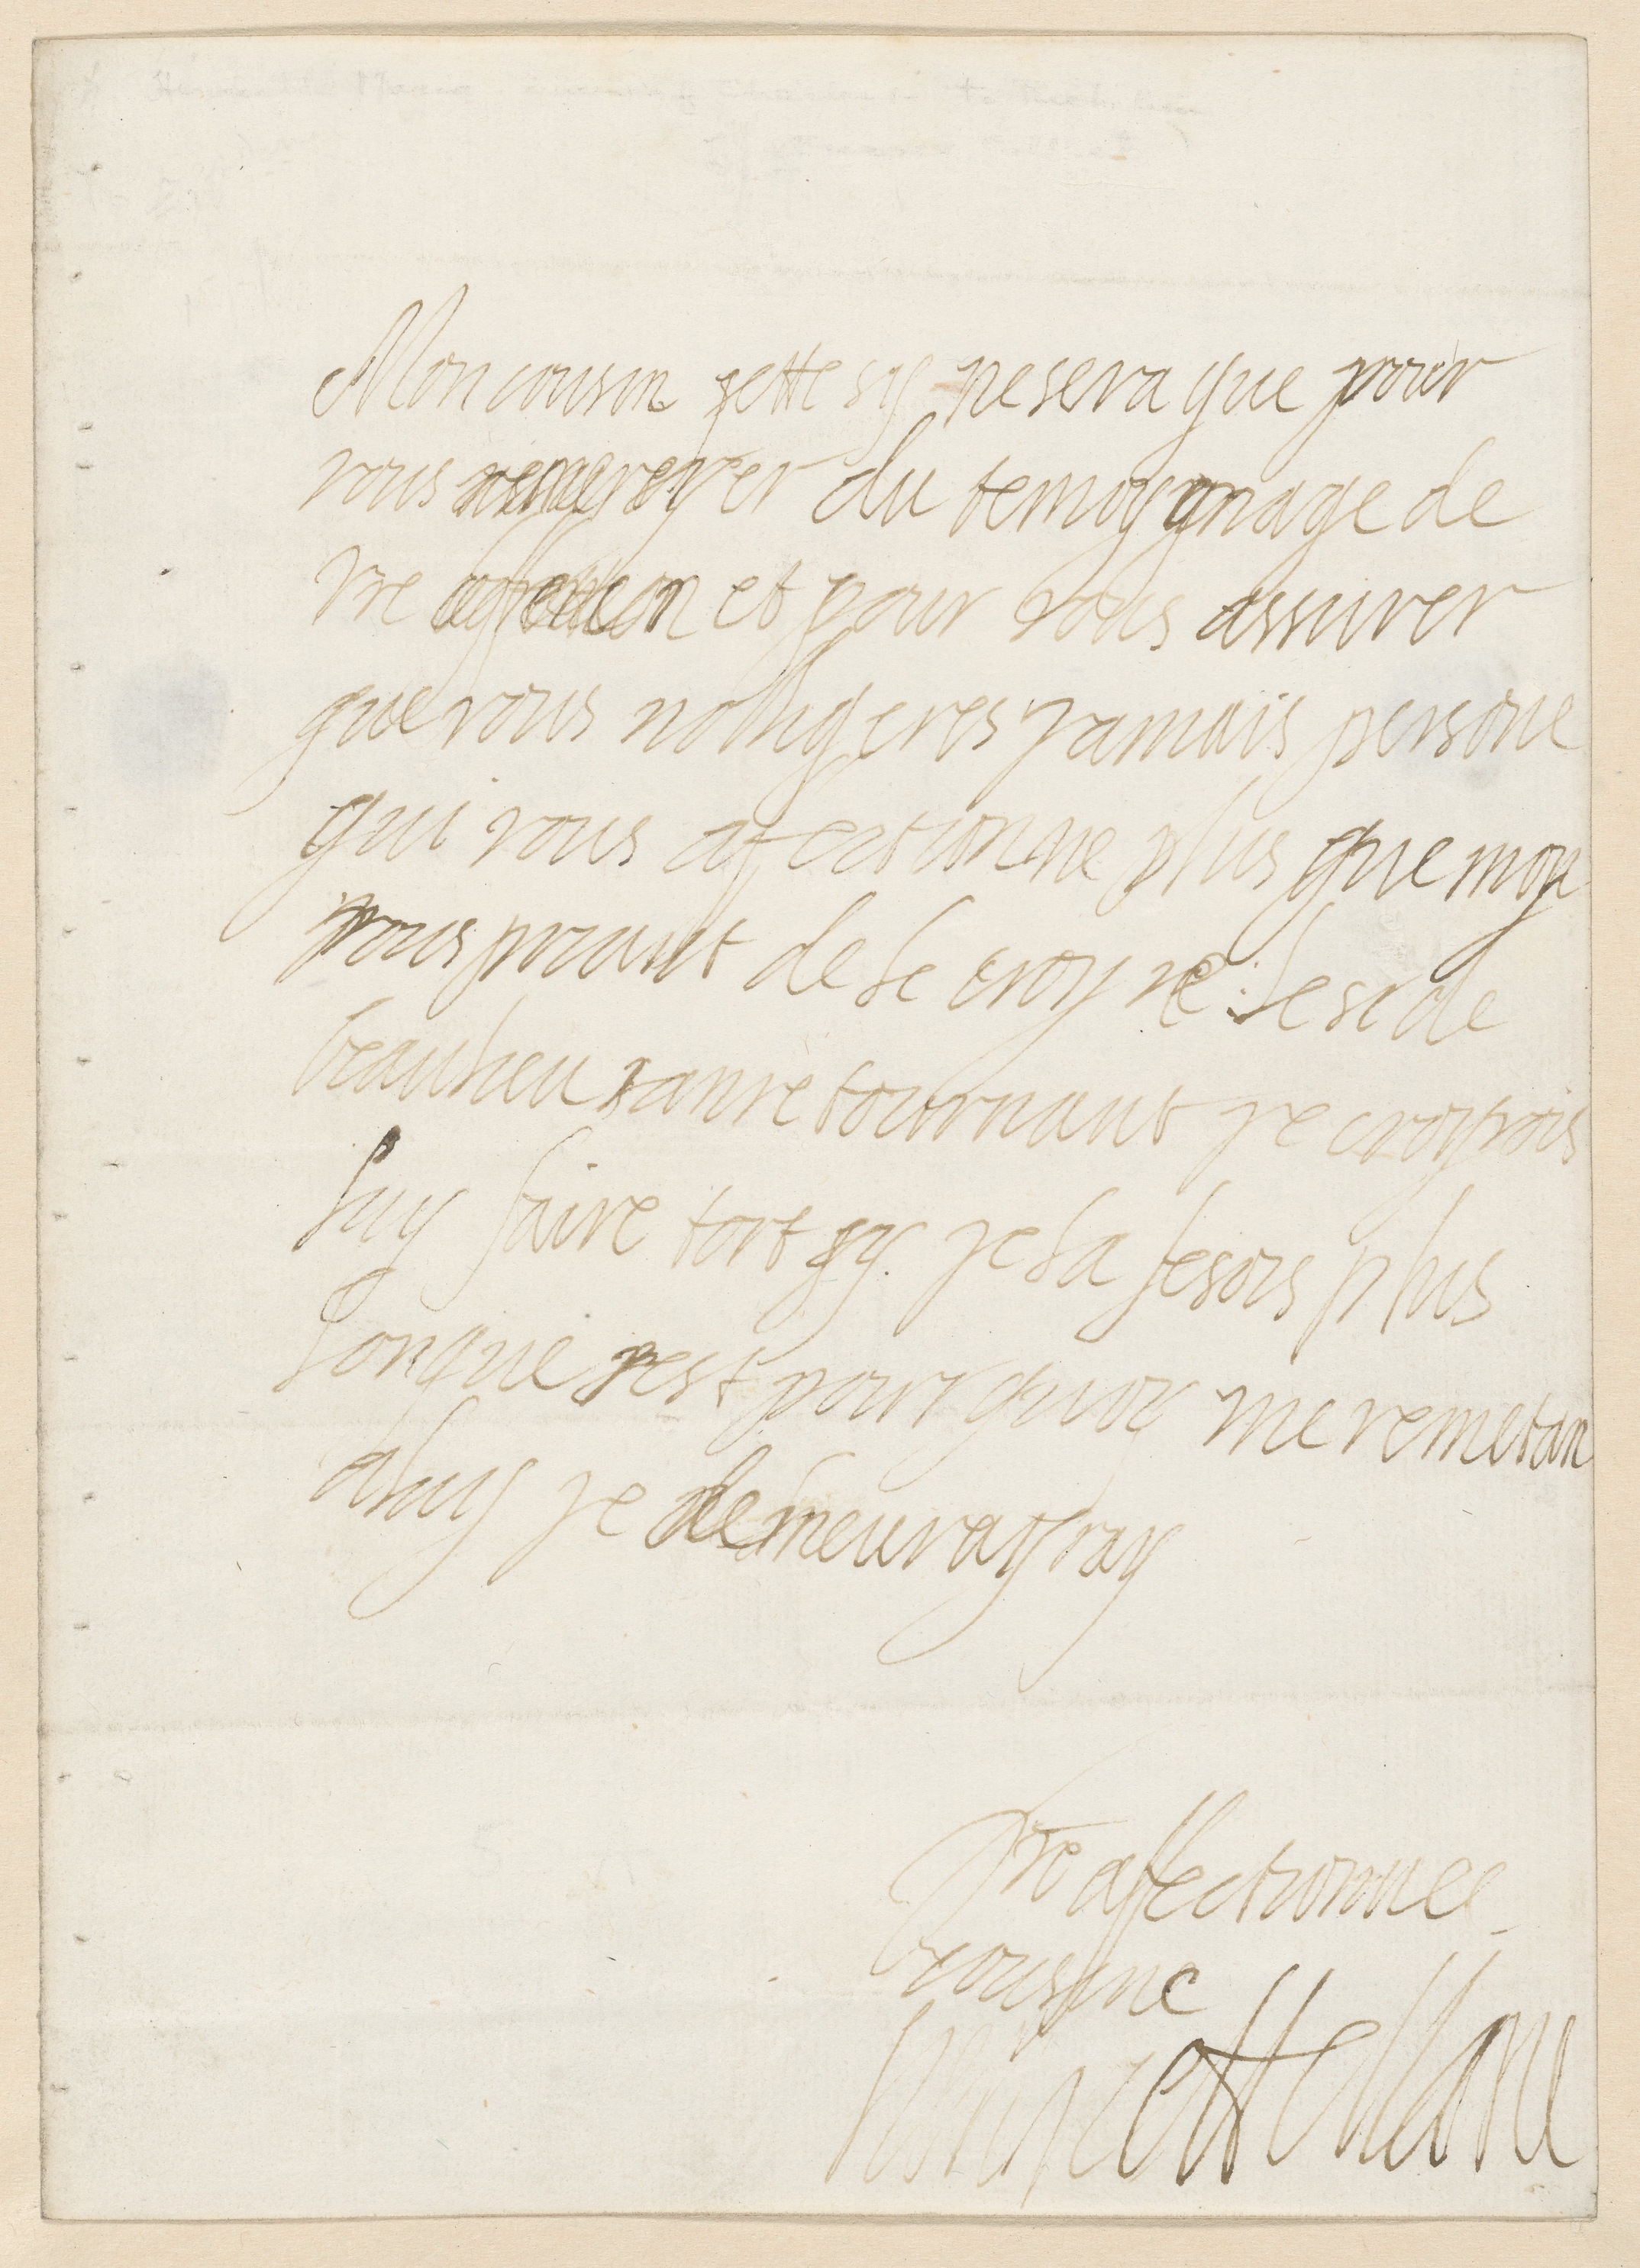 Mon cousin sette sy ne sera que pour
vous remersyer du temoygnage de
vre affection et pour vous assurer
que vous nobligeres jamais persone
qui vous afectionne plus que moy
vous priant de le croyre: le sr de
beaulieu sanretournant je croyrois
luy faire tort sy je la fesois plus
longue sest pourquoy me remetan
a luy je demeuray ray
Vre affectionnee
cousine
Henriette Marie